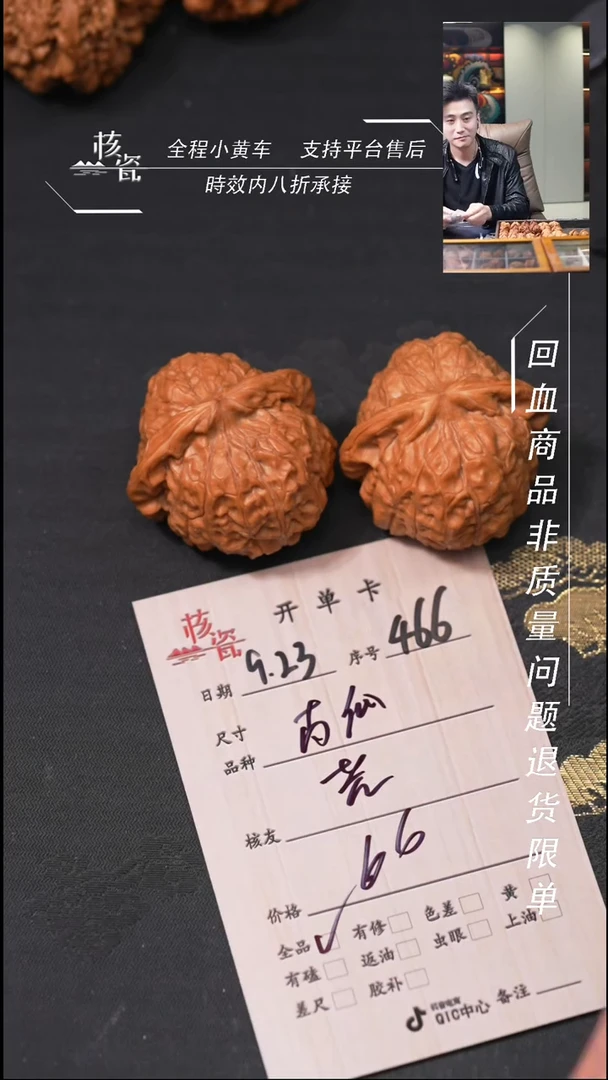 核瓷
全程小黄车 支持平台售后
時效内八折承接
回血商品非质量问题退货限单
核瓷
开单卡
日期 9.23 序号 466
尺寸
品种
核友
价格 66
全品 有修 色差 黄
有磕 返油 虫眼 上油
差尺 胶补
抖音电商
QIC中心 备注